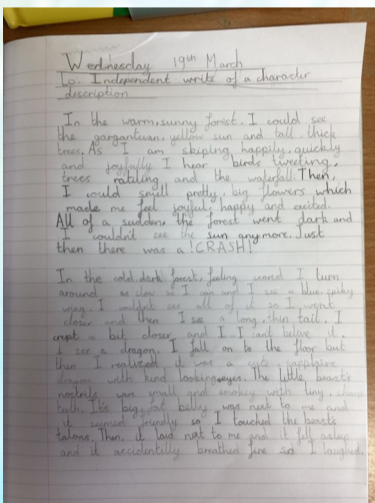 Wednesday 19th March
Lo. Independent write of a character
description
In the warm, sunny forest. I could see
the gargantuan, yellow sun and tall, thick
trees. As I am skiping happily, quickly
and joyfully I hear birds tweeting,
trees ratiling and the waterfall. Then,
I could smell pretty, big flowers which
made me feel joyful, happy and excited.
All of a sudden, the forest went dark and
I couldn't see the sun anymore. Just
then there was a !CRASH!
In the cold, dark forest, feeling I turn
around as slow as I can and I see a blue, spiky
wing. I couldn't see all of it so I went
closer and then I see a long, thin tail. I
crept a bit closer and I.. I can't belave it.
I see a dragon. I fall on to the floor but
then I realized it was a cute, sapphire
dragon with kind looking eyes. The little beast's
nostrils were small and smokey with tiny, sharp
teeth. It's big, fat belly was next to me and
it seemed friendly so I touched the beast's
talons. Then, it laid next to me and it fell asleep
and it accidentlly breathed fire so I laughed.